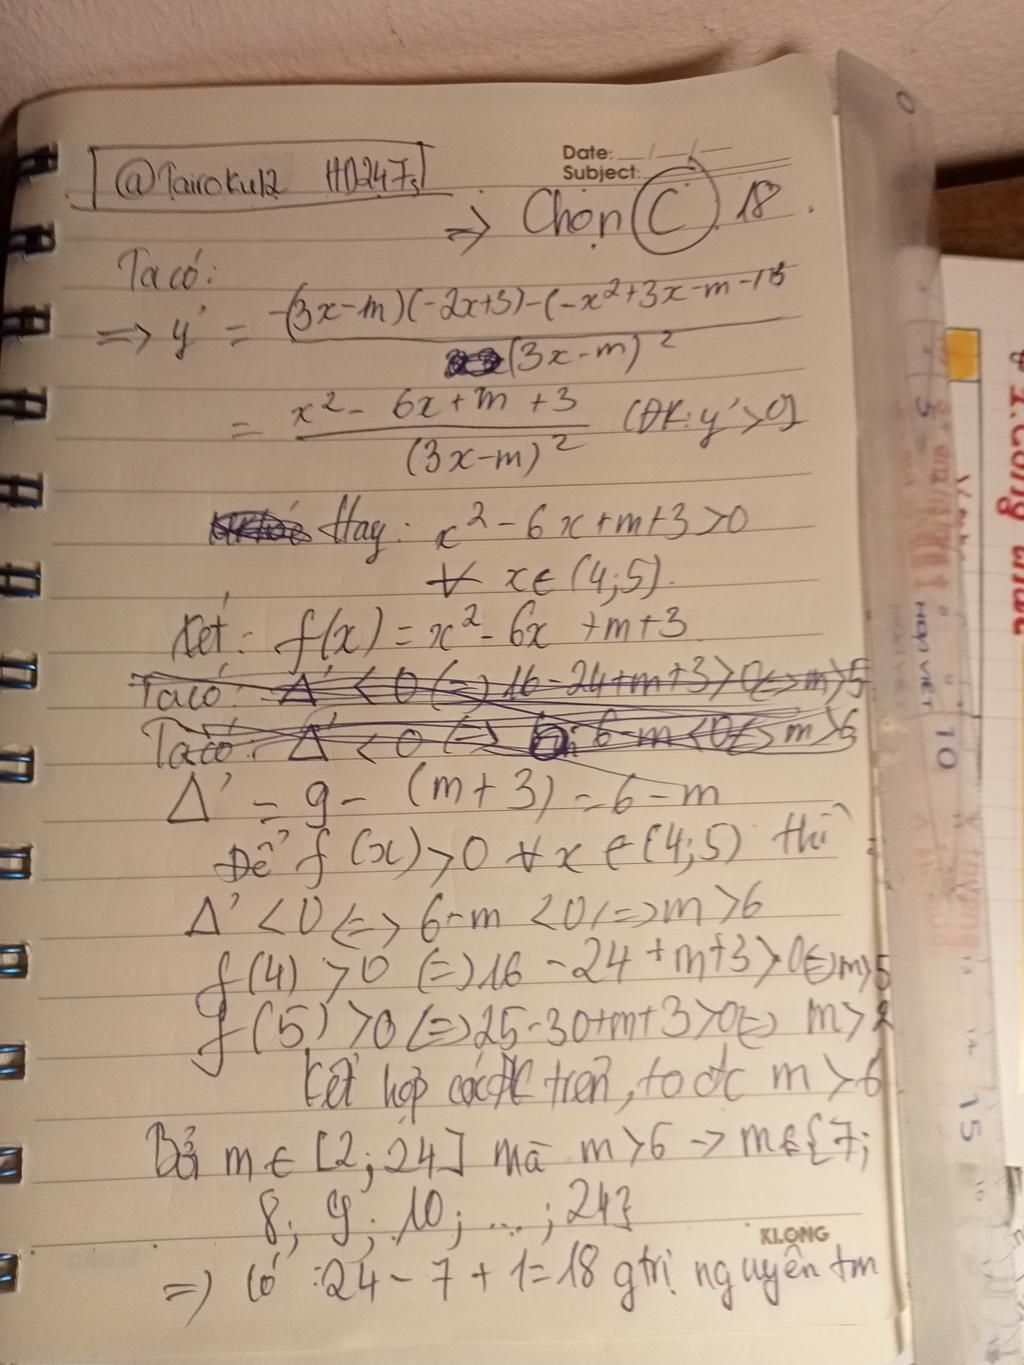 @Tairoku12 HD247
Date: / /
Subject:
=> Chọn (C) 18.
Ta có:
=> y' = -(3x-m)(-2x+3)-(-x²+3x-m-
(3x-m)²
= x² - 6x + m + 3 (ĐK: y'>0)
(3x-m)²
Hay: x² - 6x + m + 3 > 0
∀ x ∈ (4;5).
Xét: f(x) = x² - 6x + m + 3
Ta có: Δ' < 0 (=) 16 - 24 + m + 3 > 0 <=> m > 5
Ta có: Δ' < 0 (=) 6 - m < 0 <=> m > 6
Δ' = 9 - (m+3) = 6 - m
Để f(x) > 0 ∀x ∈ (4;5) thì:
Δ' < 0 (=> 6 - m < 0 (=> m > 6
f(4) > 0 (=) 16 - 24 + m + 3 > 0 (=) m > 5
f(5) > 0 (=) 25 - 30 + m + 3 > 0 (=) m > 2
Kết hợp các ĐK trên, ta đc m > 6
Bởi m ∈ [2; 24] mà m > 6 -> m ∈ {7;
8; 9; 10; ...; 24}
KLONG
=) Có : 24 - 7 + 1 = 18 gtrị nguyên tm
HỢP VIỆT
10
15